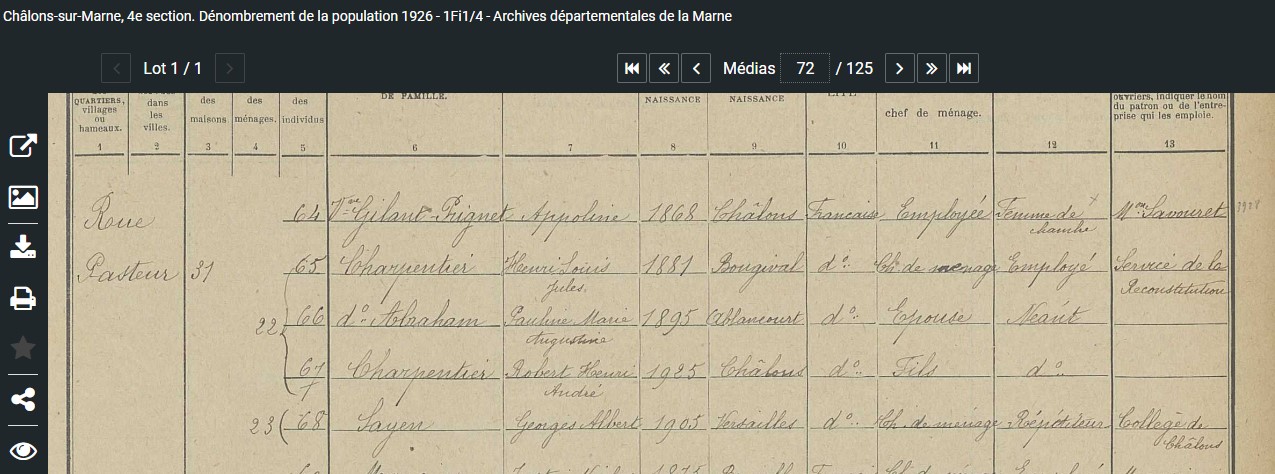 Châlons-sur-Marne, 4e section. Dénombrement de la population 1926 - 1Fi1/4 - Archives départementales de la Marne
Lot 1 / 1
Médias 72 / 125
QUARTIERS, villages ou hameaux.
dans les villes.
des maisons
des ménages.
des individus
DE FAMILLE.
NAISSANCE
NAISSANCE
chef de ménage.
ouvriers, indiquer le nom du patron ou de l'entreprise qui les emploie.
1 2 3 4 5 6 7 8 9 10 11 12 13
Rue 64 Vve Gilant-Prignet Appoline 1868 Châlons Francaise Employée Femme de chambre Mme Savouret
Pasteur 31 65 Charpentier Henri Louis Jules 1881 Bougival do Ch. de menage Employé Service de la Reconstitution
22 66 do Abraham Pauline Marie Augustine 1895 Ablancourt do Epouse Néant
67 Charpentier Robert Henri André 1925 Châlons do Fils do
23 68 Sayen Georges Albert 1905 Versailles do Ch. de ménage Répétiteur Collège de Châlons